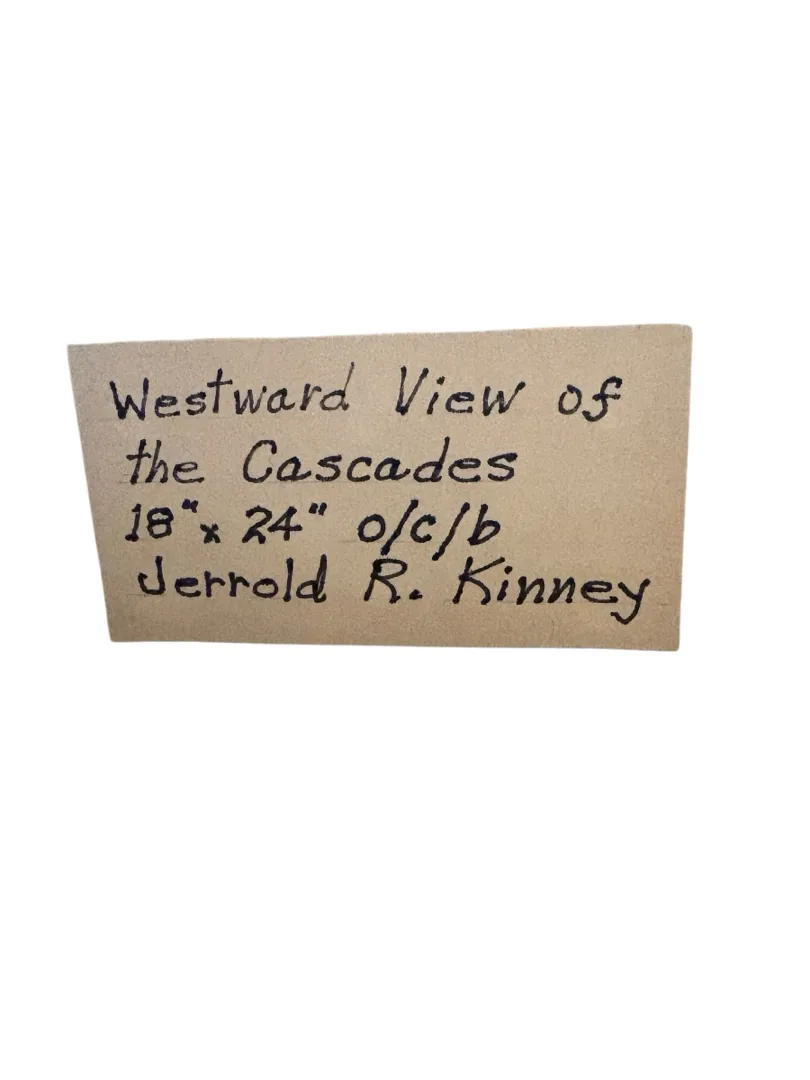 Westward View of
the Cascades
18" x 24" o/c/b
Jerrold R. Kinney